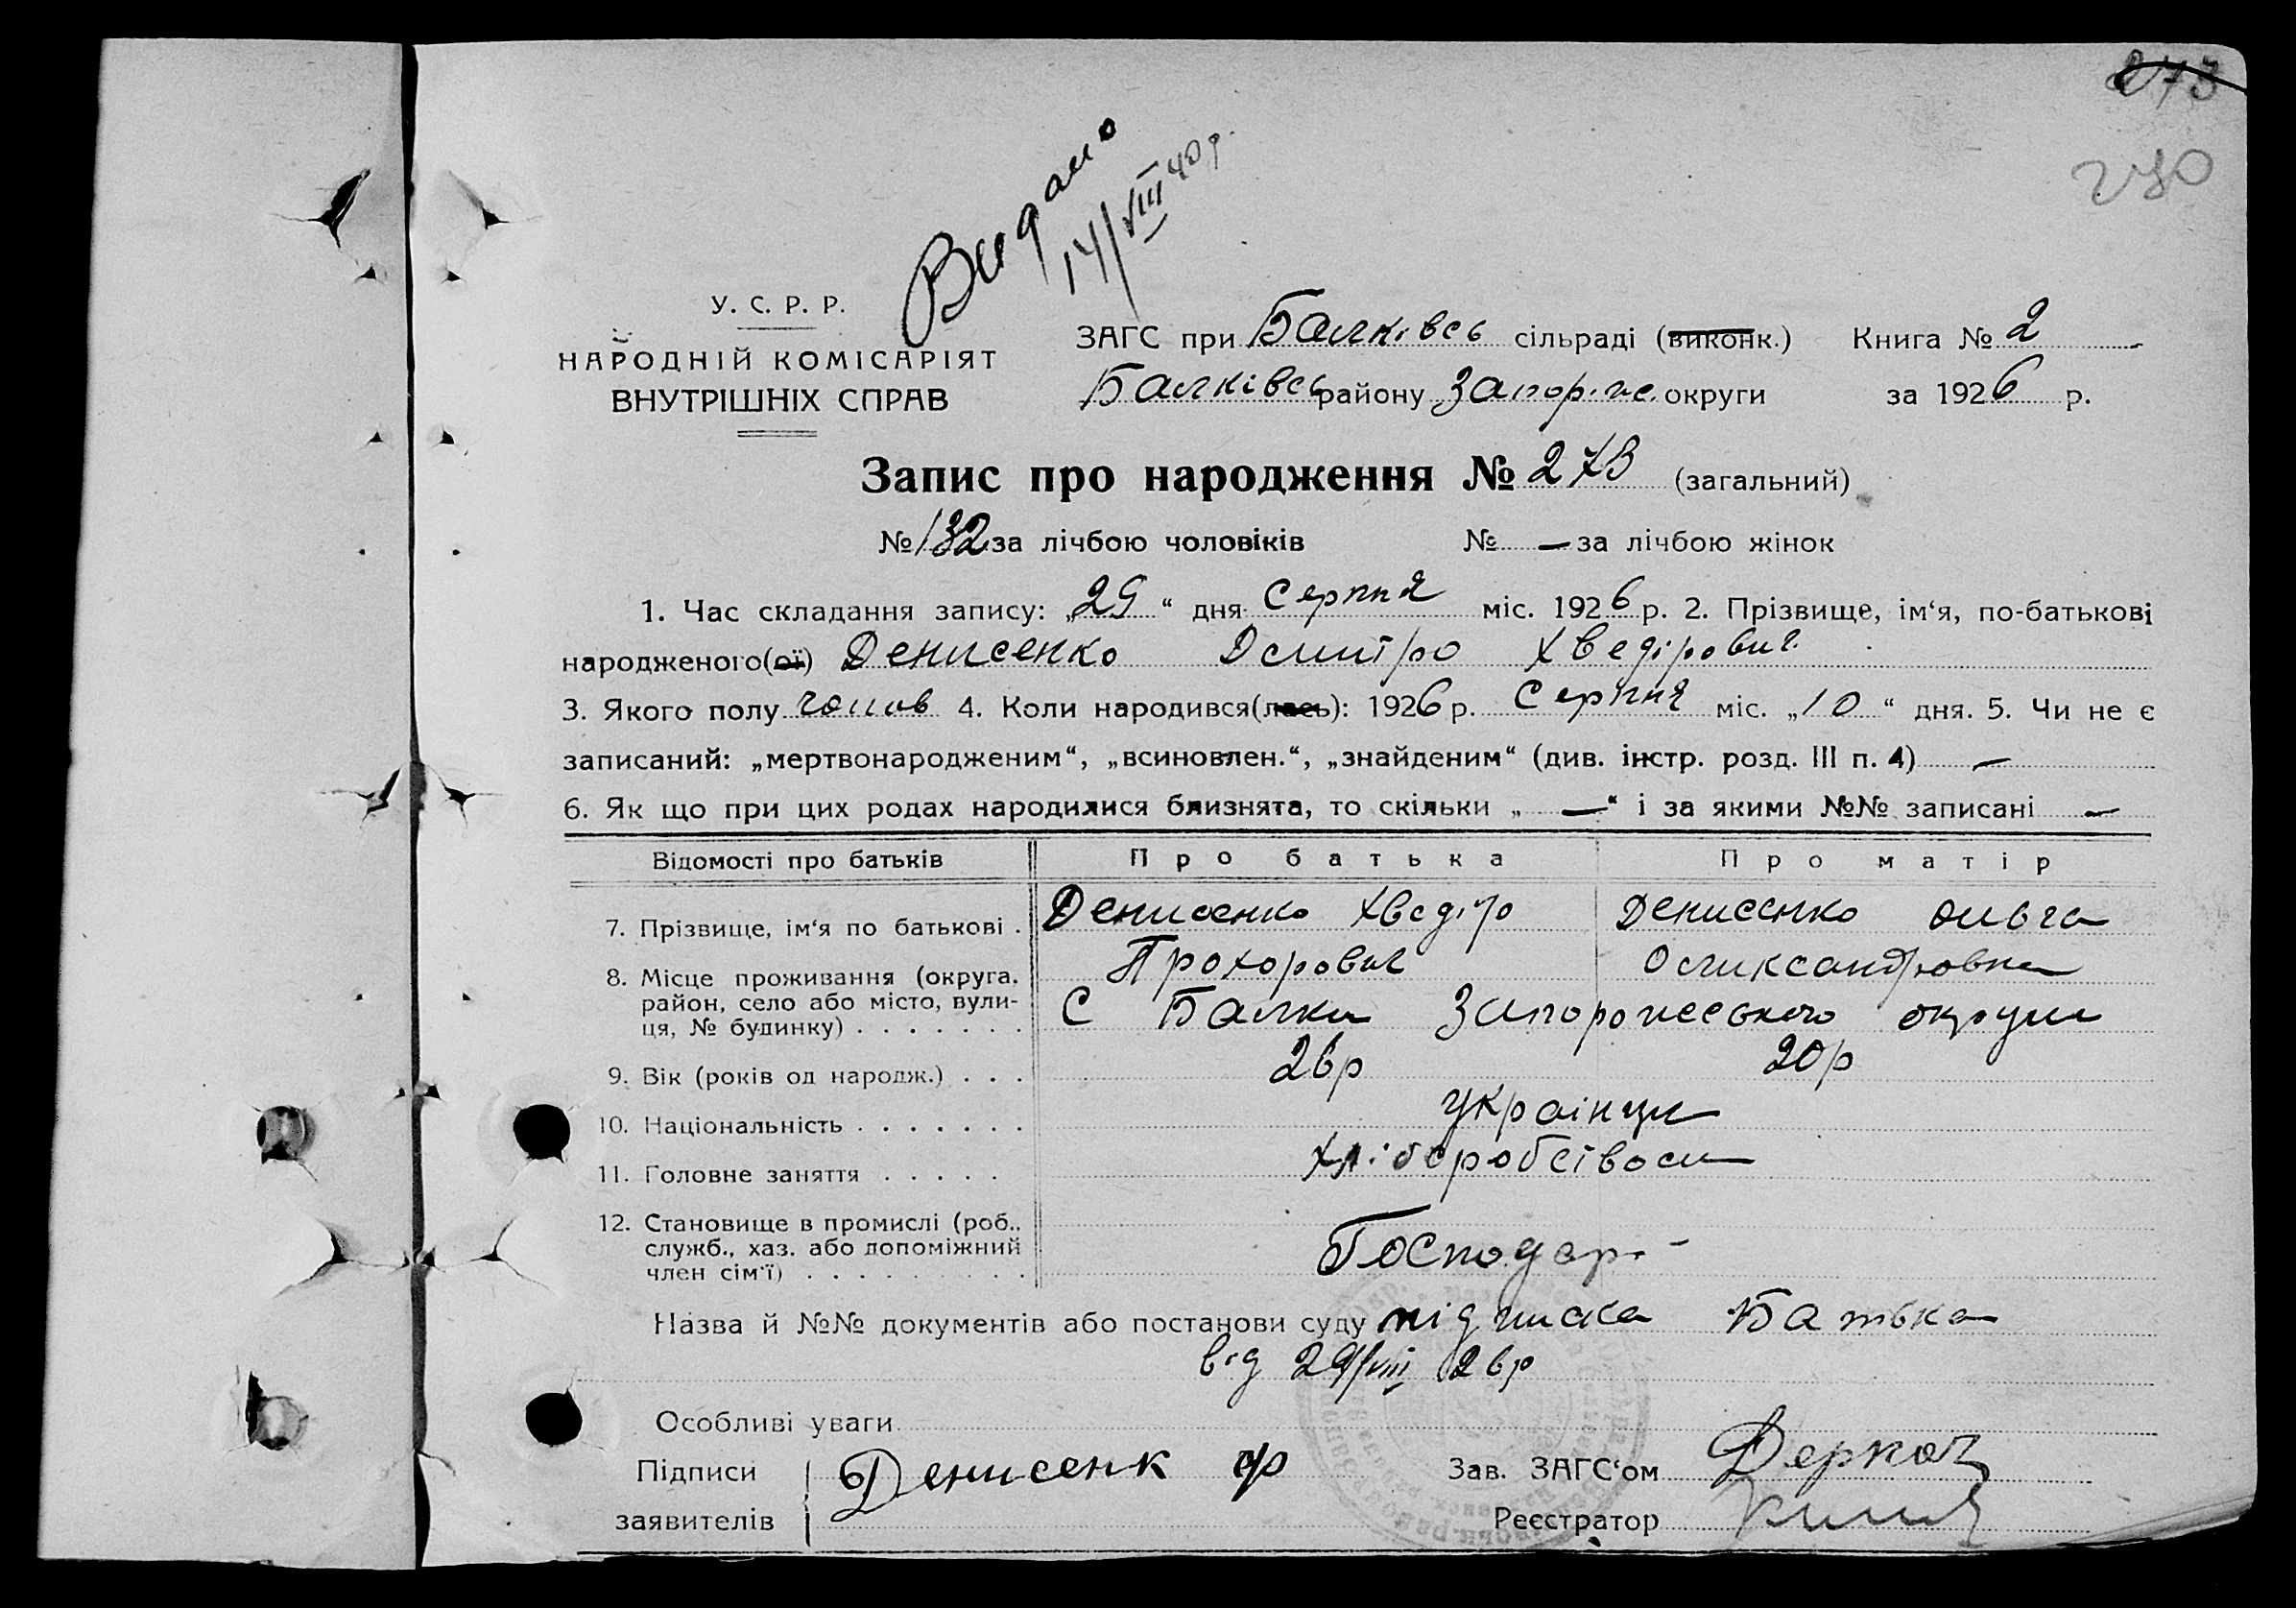 273
270
Видано
14/VIII 40 р.
У. С. Р. Р.
НАРОДНІЙ КОМІСАРІЯТ
ВНУТРІШНІХ СПРАВ
ЗАГС при Балківсь сільраді (виконк.) Книга № 2
Балківсь району Запоріж. округи за 1926 р.
Запис про народження № 273 (загальний)
№ 132 за лічбою чоловіків № — за лічбою жінок
1. Час складання запису: „29“ дня Серпня міс. 1926 р. 2. Прізвище, ім‘я, по-батькові
народженого(ої) Денисенко Дмитро Хведірович
3. Якого полу чолов 4. Коли народився(лась): 1926 р. Серпня міс. „10“ дня. 5. Чи не є
записаний: „мертвонародженим“, „всиновлен.“, „знайденим“ (див. інстр. розд. III п. 4) —
6. Як що при цих родах народилися близнята, то скільки „ — “ і за якими №№ записані —
Відомості про батьків Про батька Про матір
7. Прізвище, ім‘я по батькові . Денисенко Хведір Денисенко Ольга
Прохорович Олександровна
8. Місце проживання (округа, район, село або місто, вули-
ця, № будинку) . . . . . . . С Балки Запорожського округи
9. Вік (років од народж.) . . . 26 р 20 р
10. Національність . . . . . . . українци
11. Головне заняття . . . . . хліборобством
12. Становище в промислі (роб.,
служб., хаз. або допоміжний
член сім‘ї) . . . . . . . . . Господарі
Назва й №№ документів або постанови суду підписка Батька
від 29/VIII 26 р
Особливі уваги
Підписи Денисенк Зав. ЗАГС‘ом Деркач
заявителів Реєстратор